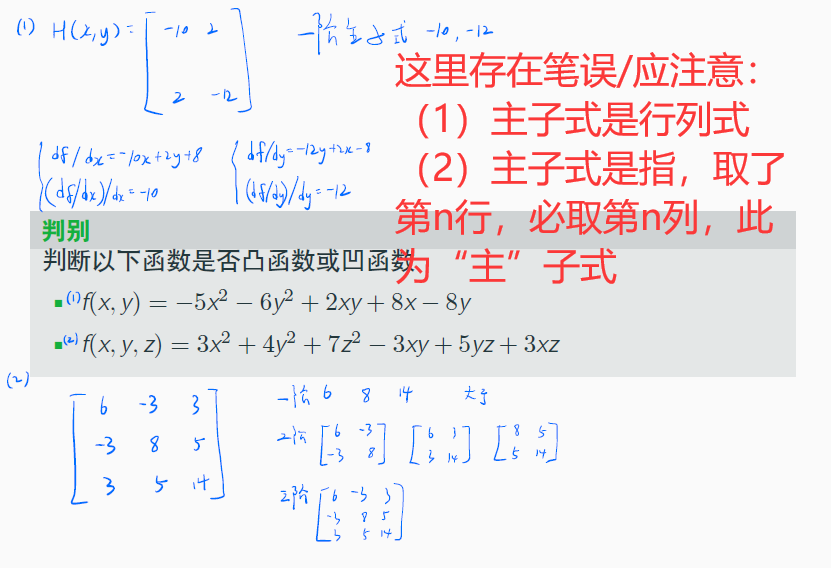 (1) H(x,y)= [ -10 2
2 -12 ]
一阶主子式 -10, -12
这里存在笔误/应注意：
（1）主子式是行列式
（2）主子式是指，取了
第n行，必取第n列，此
为“主”子式
df/dx=-10x+2y+8
(df/dx)/dx=-10
df/dy=-12y+2x-8
(df/dy)/dy=-12
判别
判断以下函数是否凸函数或凹函数
(1) f(x, y) = −5x² − 6y² + 2xy + 8x − 8y
(2) f(x, y, z) = 3x² + 4y² + 7z² − 3xy + 5yz + 3xz
(2)
6 -3 3
-3 8 5
3 5 14
一阶 6 8 14 大于
2阶 [ 6 -3 ] [ 6 3 ] [ 8 5 ]
[ -3 8 ] [ 3 14 ] [ 5 14 ]
阶 [ 6 -3 3
-3 8 5
3 5 14 ]